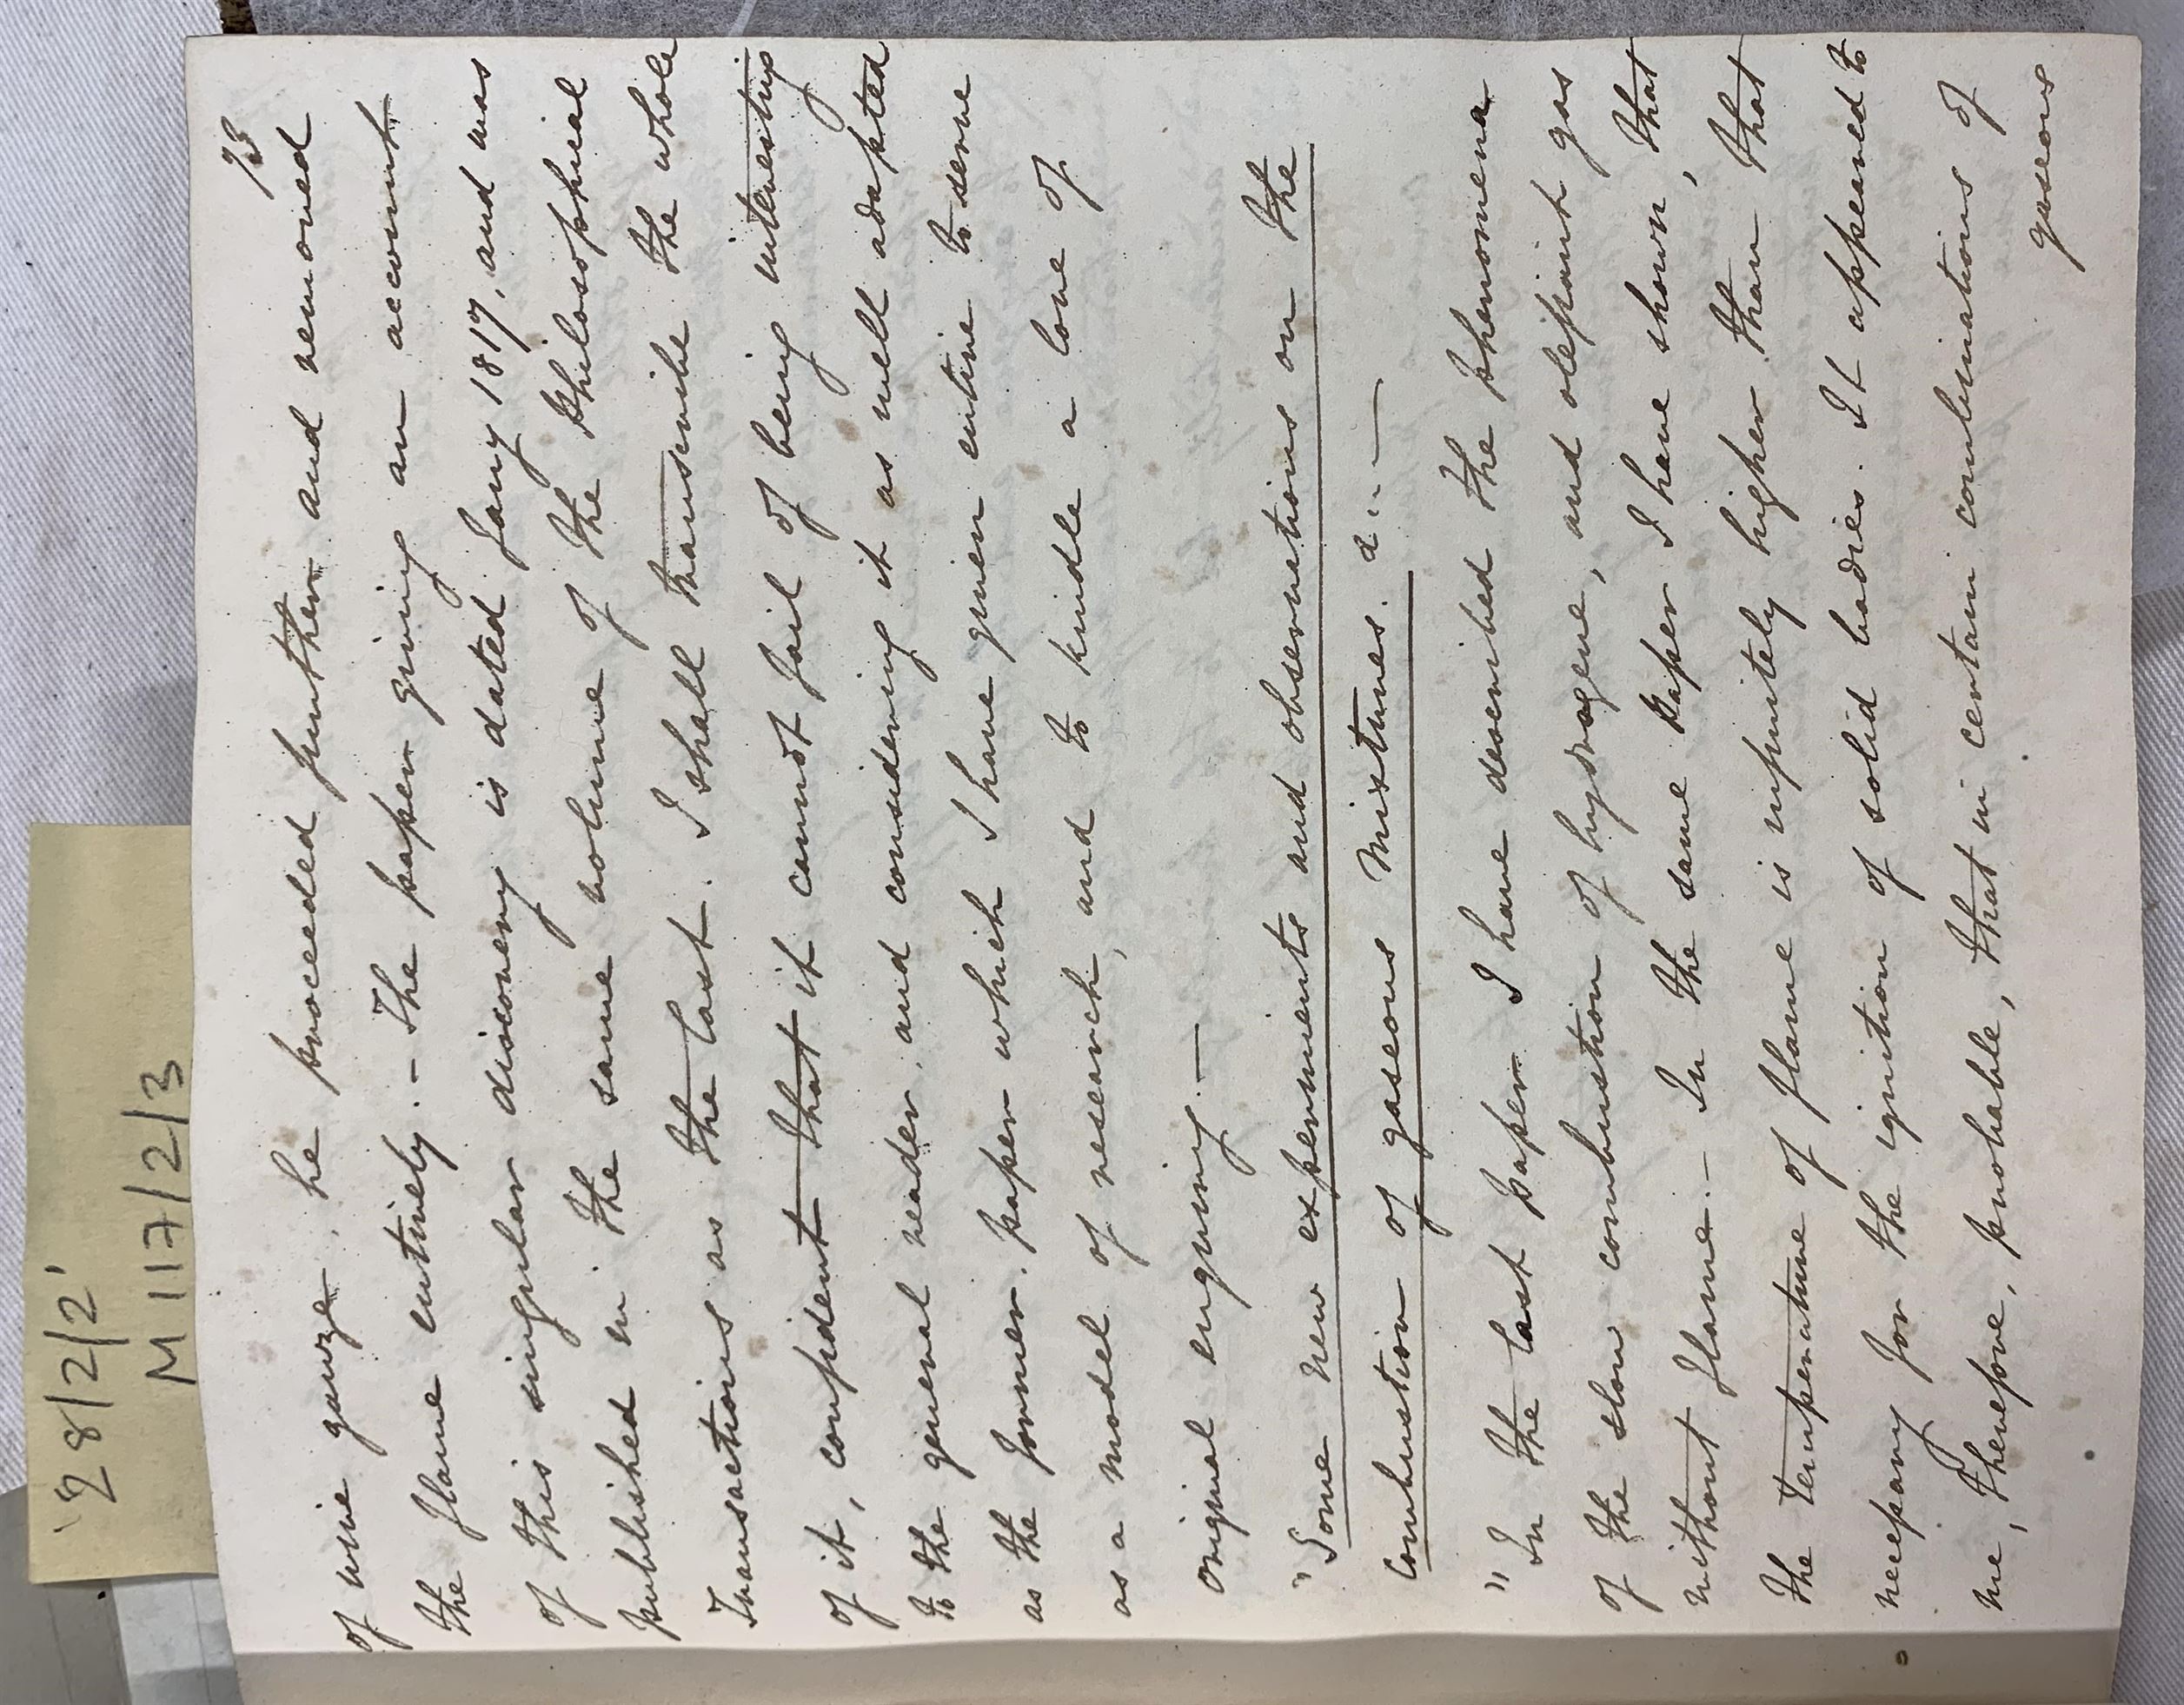 '28/2/2'
M 117/2/3
73
of wire gauze, he proceeded further and removed
the flame entirely. – The paper giving an account
of this singular discovery is dated Jany 1817, and was
published in the same volume of the Philosophical
Transactions as the last. I shall transcribe the whole
of it, confident that it cannot fail of being interesting
to the general reader, and considering it as well adapted
as the former paper which I have given entire to serve
as a model of research, and to kindle a love of
original enquiry. —
"Some new experiments and observations on the
combustion of gaseous mixtures. &... —
"In the last paper I have described the phenomena
of the slow combustion of hydrogene, and olefiant gas
without flame. – In the same paper I have shown, that
the temperature of flame is infinitely higher than that
necessary for the ignition of solid bodies. It appeared to
me, therefore, probable, that in certain combinations of
gaseous